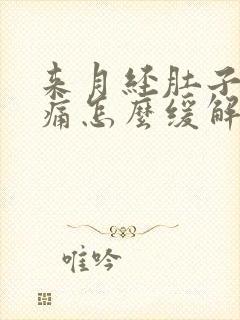 来月经肚子
痛怎麼缓解
唯吟